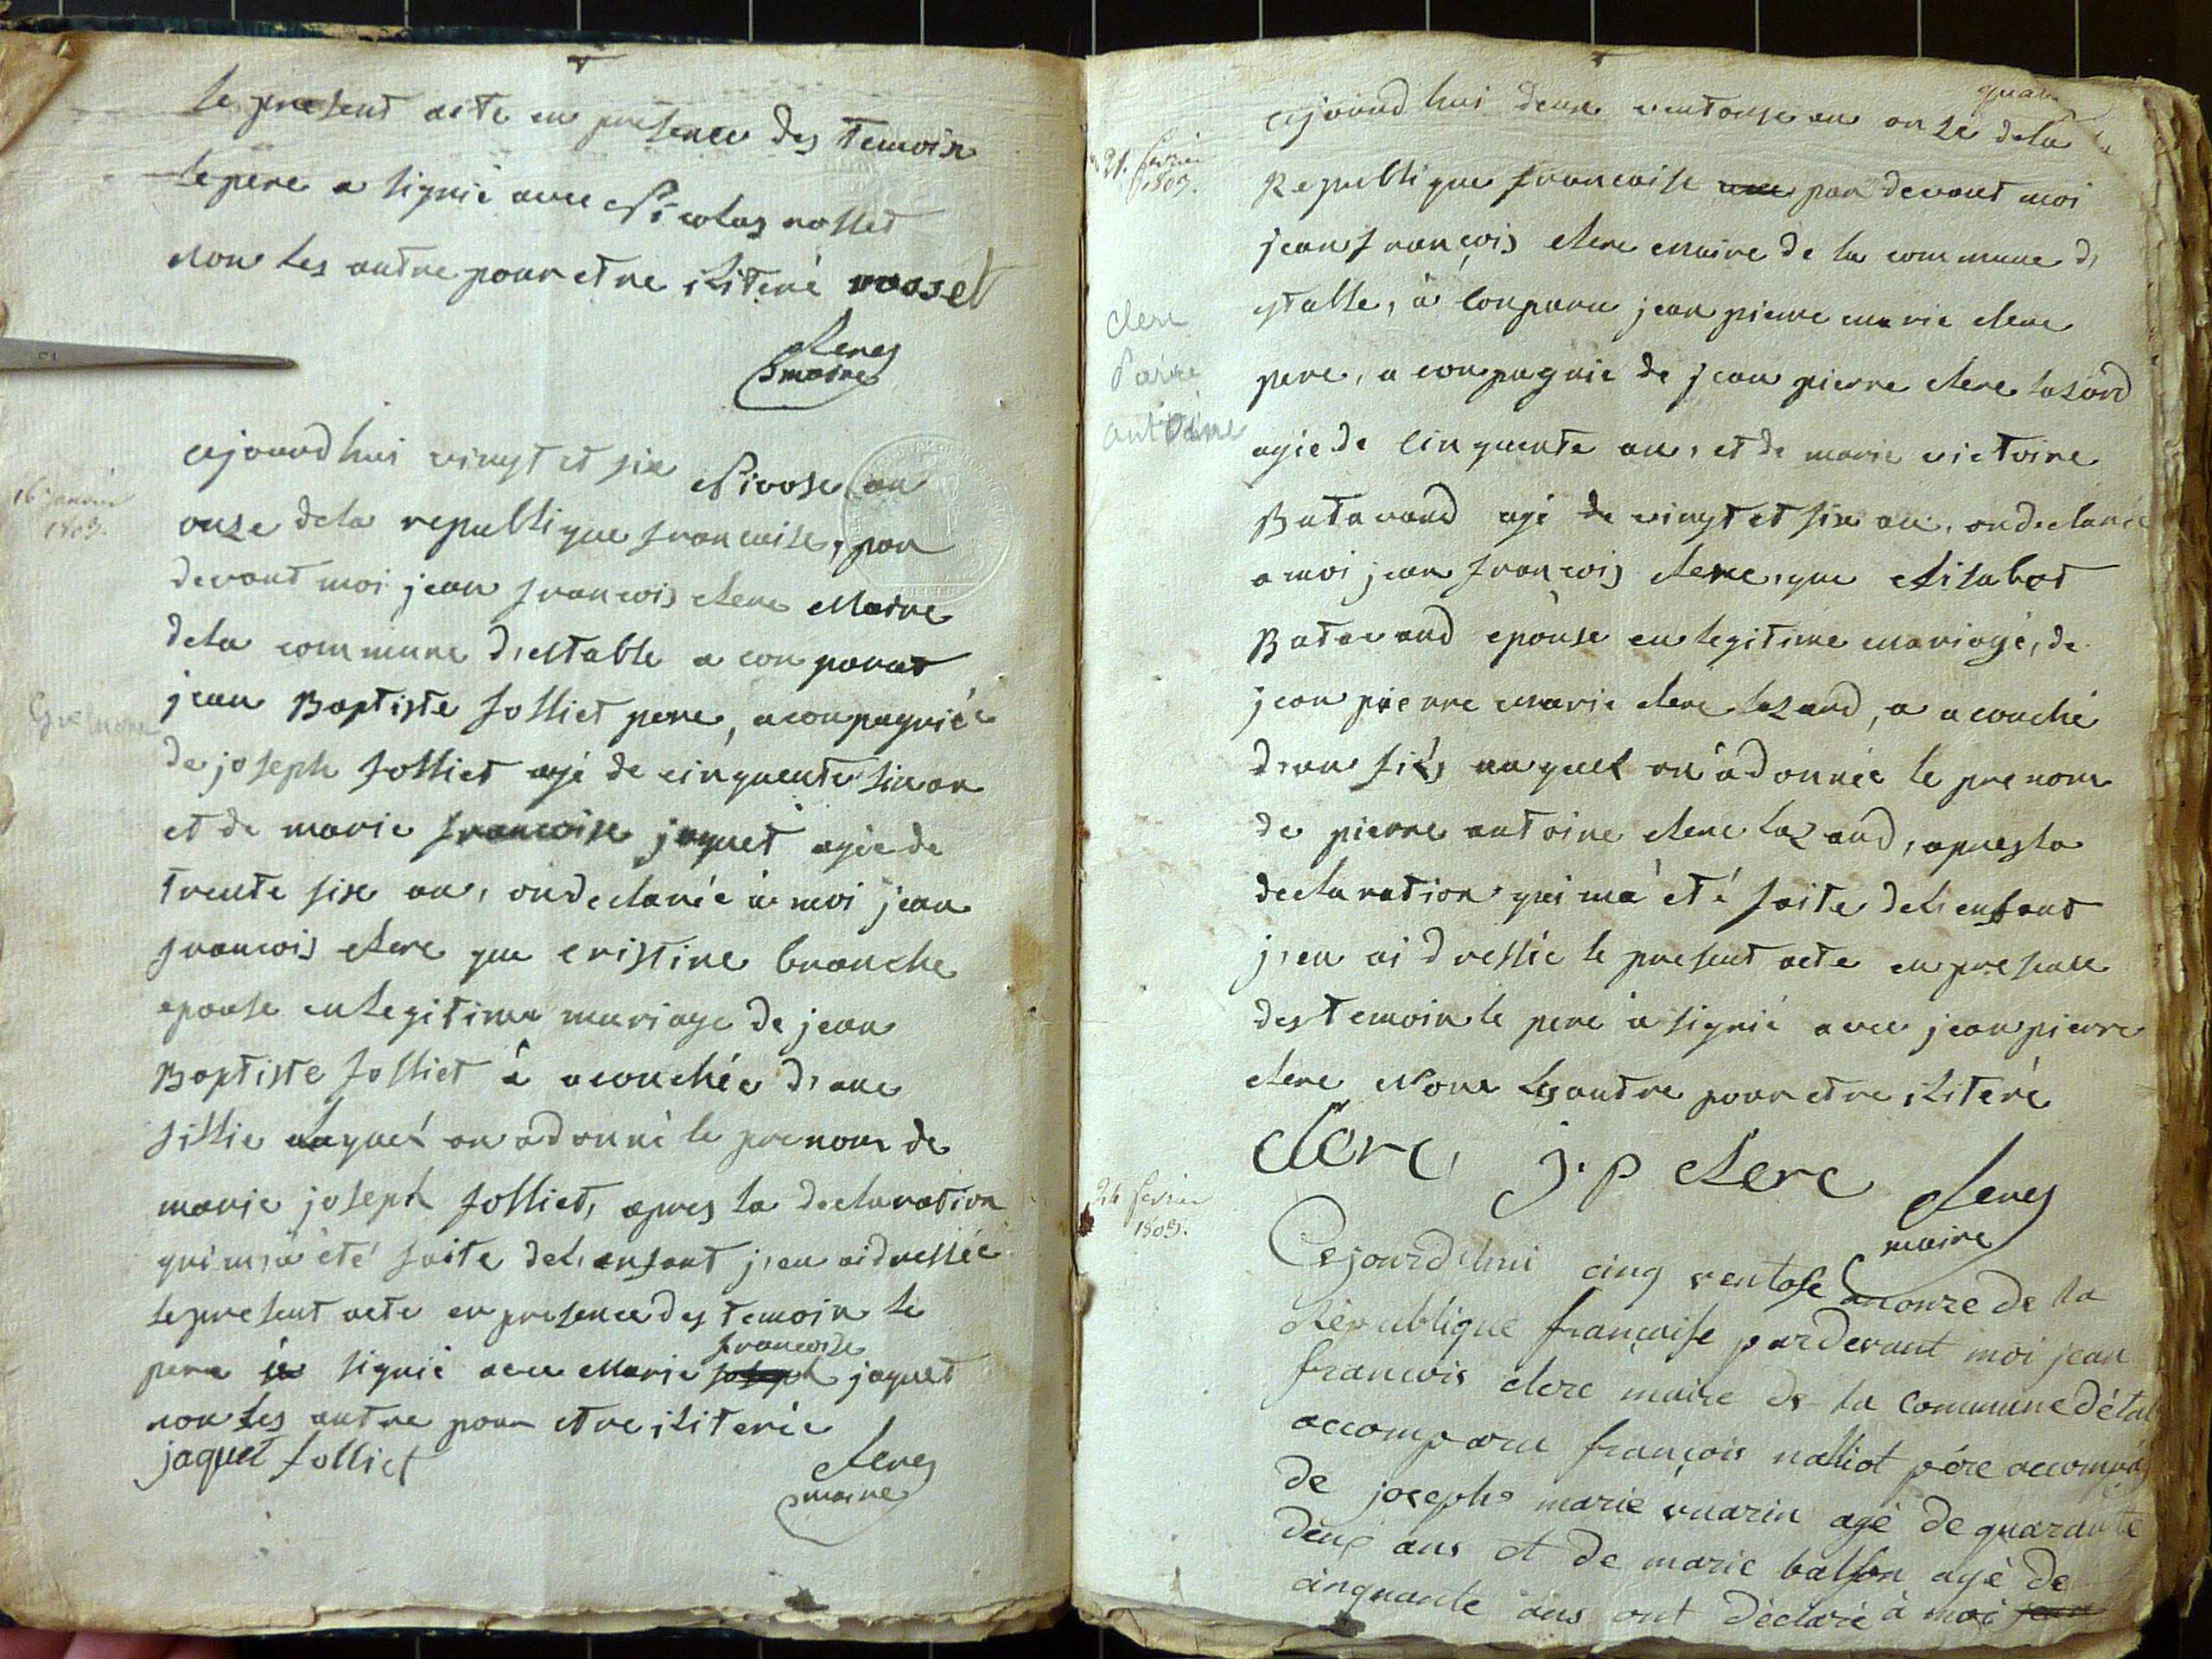 le present acte en presence des temoin
le pere a signié avec Nicolas rosset
non les autre pour etre iliteré rosset
clerc
maire
16 janvier
1803.
cejourd hui vingt et six Nivose an
onze dela republique francoise, par
devant moi jean francois clerc Maire
dela commune d,estable a conparut
jean Baptiste folliet pere, aconpagniée
de joseph folliet agé de cinquente six an
et de marie francoise jaquet agée de
trente six an, on declarée à moi jean
francois clerc que cristine branche
epouse en legitime mariage de jean
Baptiste folliet à acouchée d,une
fillie laquel on a donné le prenom de
marie joseph folliet, apres la declaration
qui m,a été faite del,enfant j,en ai dressée
le present acte en presence des temoin le
francoise
pere a signié avec Marie joseph jaquet
non les autre pour etre iliterée
jaquet folliet
clerc
maire
cejourd hui deux ventose an onze dela
21. fevrier
1803.
Republique francoise par devant moi
jean françois clerc maire de la commune d,
estable, à conparu jean pierre marie clerc
Clerc
Pierre
antoine
pere, a conpagnié de jean pierre clerc lazard
agée de cinquente an, et de marie victoire
Batavand agé de vingt et six an, on declarée
a moi jean françois clerc, que Elisabet
Batavand epouse en legitime mariage, de
jean pierre marie clerc lazard, a acouché
d,un fils auquel on a donnée le prenom
de pierre antoine clerc lazard, apres la
declaration qui ma été faite del,enfant
j,en ai dressée le present acte en presence
des temoin le pere a signié avec jean pierre
clerc Non les autre pour etre iliteré
clerc j.p clerc
clerc
maire
24 fevrier
1803.
Cejourd'hui cinq ventose an onze de la
République française pardevant moi jean
françois clerc maire de la commune d'étab
accomparu françois nalliot pére accompag
de joseph marie vuarin agé de quarante
deux ans et de marie balfon agé de
cinquante ans ont déclaré à moi jean